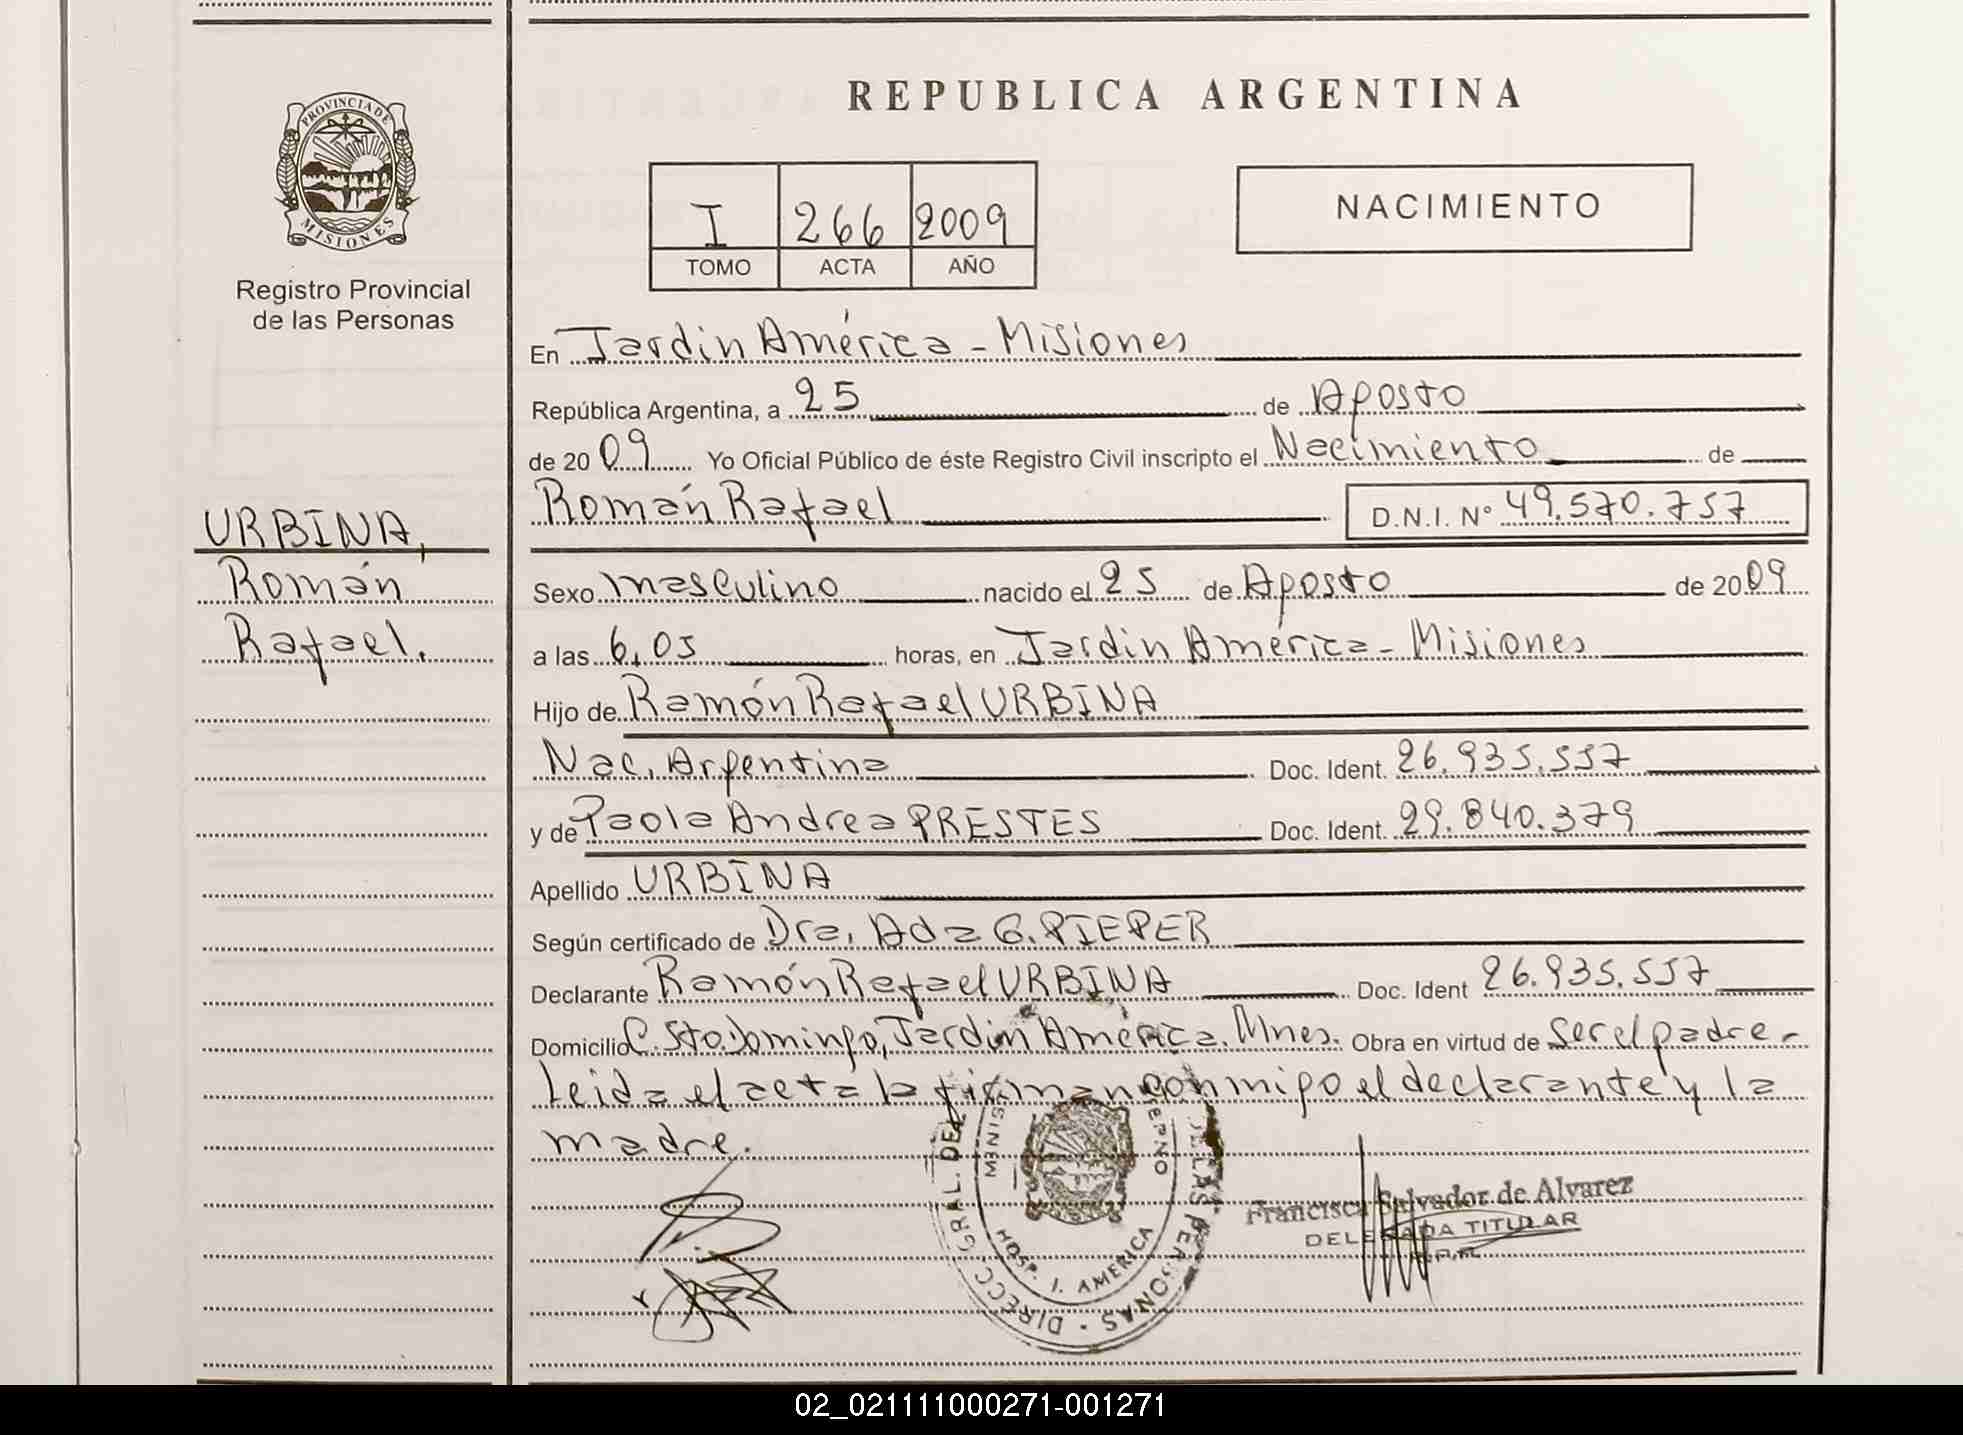 REPUBLICA ARGENTINA
PROVINCIA DE
MISIONES
Registro Provincial
de las Personas
I 266 2009
TOMO ACTA AÑO
NACIMIENTO
En Jardín América - Misiones
República Argentina, a 25 de Agosto
de 2009 Yo Oficial Público de éste Registro Civil inscripto el Nacimiento de
Román Rafael D.N.I. N° 49.570.757
URBINA,
Román
Rafael.
Sexo masculino nacido el 25 de Agosto de 2009
a las 6,05 horas, en Jardín América - Misiones
Hijo de Ramón Rafael URBINA
Nac. Argentina Doc. Ident. 26.935.557
y de Paola Andrea PRESTES Doc. Ident. 29.840.379
Apellido URBINA
Según certificado de Dra. Ada G. PIEPER
Declarante Ramón Rafael URBINA Doc. Ident 26.935.557
Domicilio C. Sto. Domingo, Jardín América. Mnes. Obra en virtud de Ser el padre -
Leida el acta la firman conmigo el declarante y la
madre.
DIRECC. GRAL. DE LAS PERSONAS
HOSP. J. AMERICA
Francisca Salvador de Alvarez
DELEGADA TITULAR
02_021111000271-001271